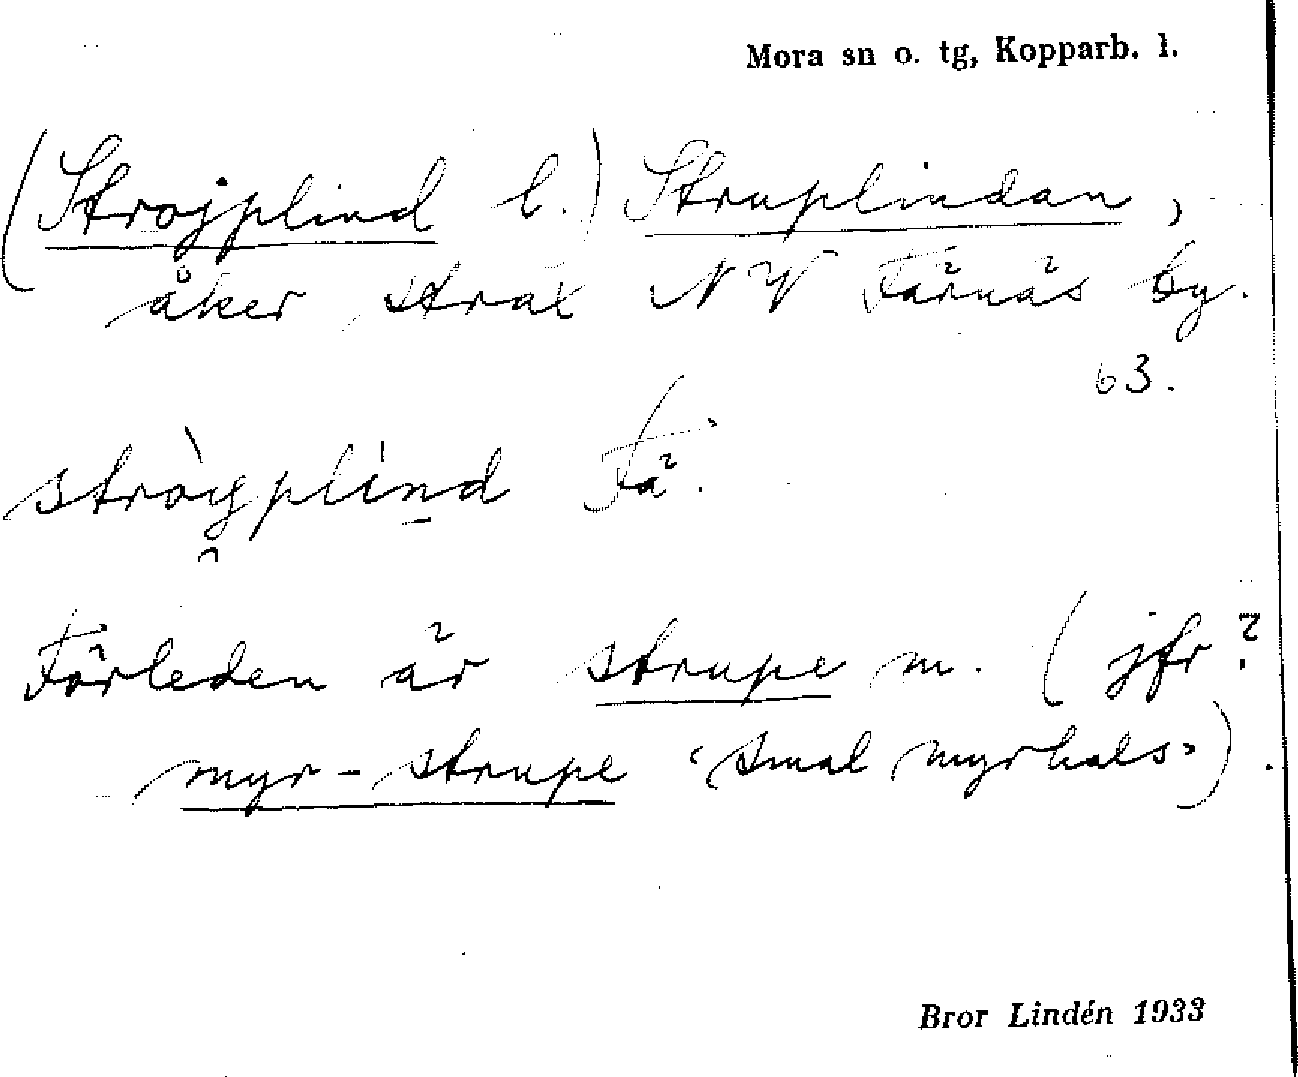 Mora sn o. tg, Kopparb. l.
(Strojplind l.) Struplindan,
åker strax NV Färnäs by.
63.
stròyplìnd Fä.
Förleden är strupe m. (jfr?
myr-strupe "smal myrhals").
Bror Lindén 1933